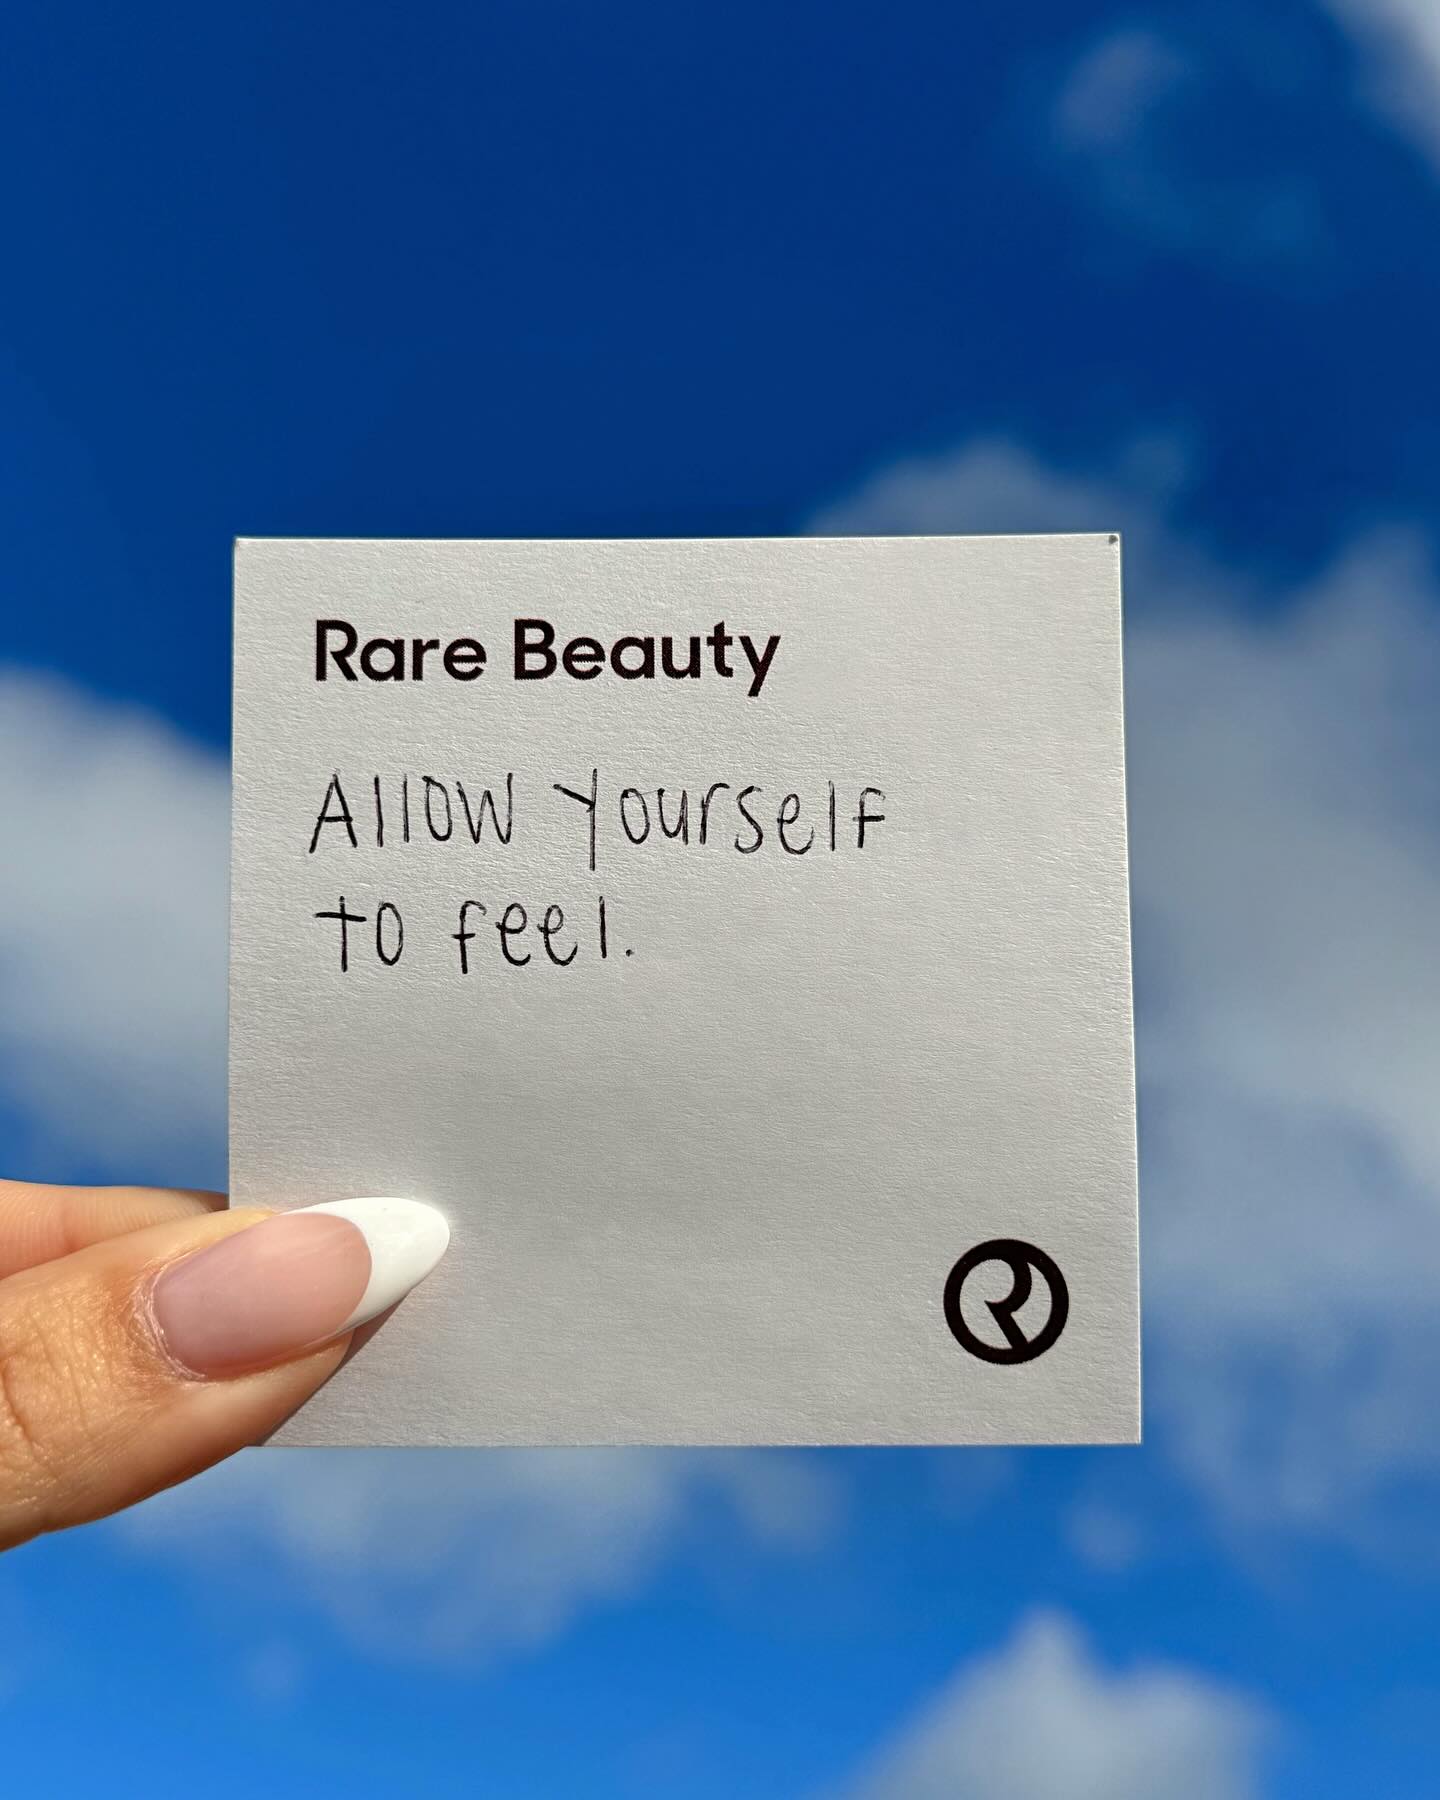 Rare Beauty
Allow yourself
to feel.
R